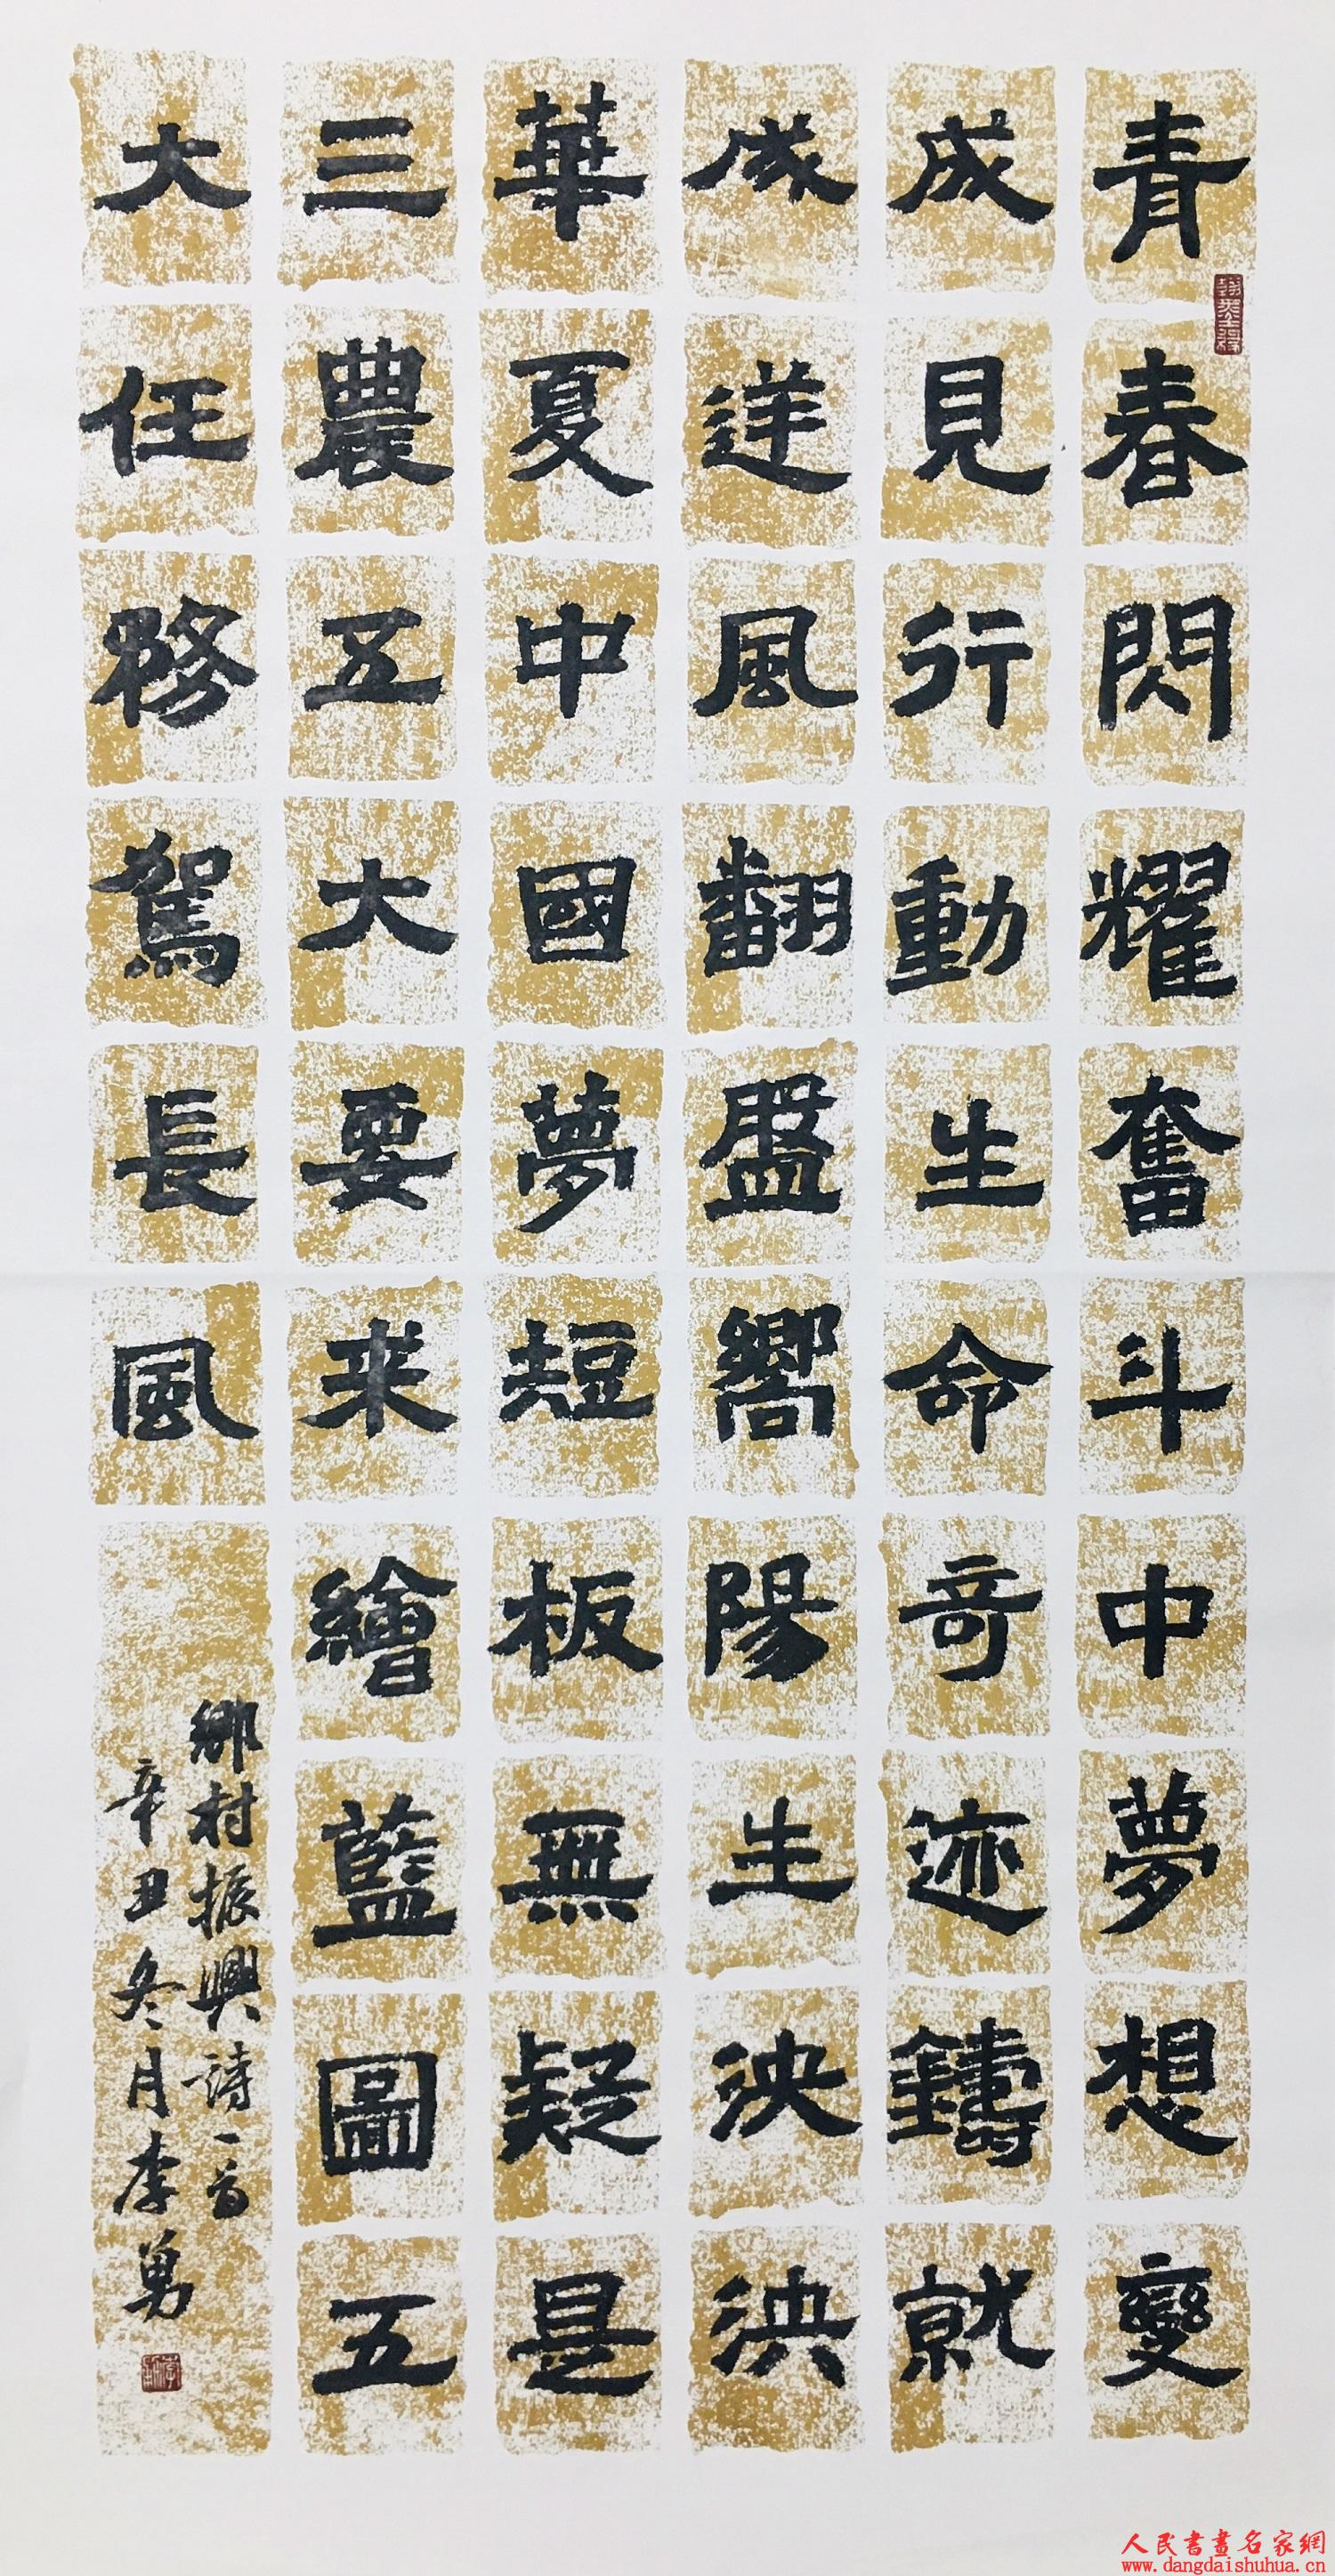 青春閃耀奮斗中夢想變
成見行動生命奇迹鑄就
成逆風翻盤嚮陽生泱泱
華夏中國夢短板無疑是
三農五大要来繪藍圖五
大任務駕長風
鄉村振興詩一首
辛丑冬月李勇
人民書畫名家網
www.dangdaishuhua.cn